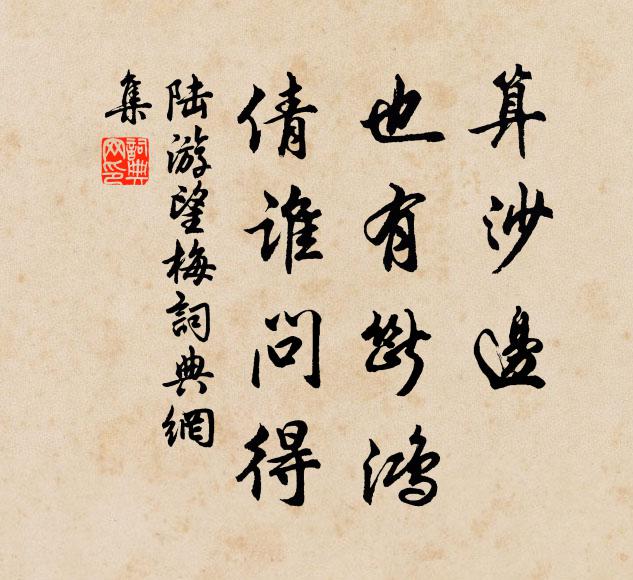 算沙邊
也有斷鴻
倩誰問得
陸游望梅詞典網
集
詞典網印